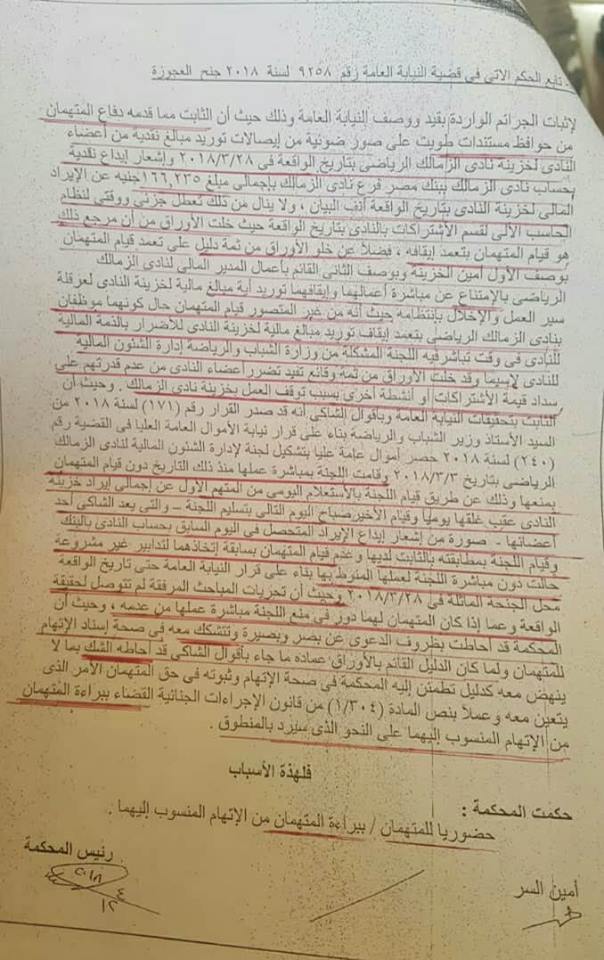 - تابع الحكم الاتى فى قضية النيابة العامة رقم ٩٢٥٨ لسنة ٢٠١٨ جنح العجوزة
لإثبات الجرائم الواردة بقيد ووصف النيابة العامة وذلك حيث أن الثابت مما قدمه دفاع المتهمان
من حوافظ مستندات طويت على صور ضوئية من إيصالات توريد مبالغ نقدية من أعضاء
النادى لخزينة نادى الزمالك الرياضى بتاريخ الواقعة فى ٢٠١٨/٣/٢٨ وإشعار إيداع نقدية
بحساب نادى الزمالك ببنك مصر فرع نادى الزمالك بإجمالى مبلغ ١٦٦,٢٣٥ جنيه عن الإيراد
المالى لخزينة النادى بتاريخ الواقعة أنف البيان ، ولا ينال من ذلك تعطل جزئى ووقتى لنظام
الحاسب الألى لقسم الأشتراكات بالنادى بتاريخ الواقعة حيث خلت الأوراق من أن مرجع ذلك
هو قيام المتهمان بتعمد إيقافه ، فضلاً عن خلو الأوراق من ثمة دليل على تعمد قيام المتهمان
بوصف الأول أمين الخزينة وبوصف الثانى القائم بأعمال المدير المالى لنادى الزمالك
الرياضى بالإمتناع عن مباشرة أعمالهما وإيقافهما توريد أية مبالغ مالية لخزينة النادى لعرقلة
سير العمل والإخلال بإنتظامه حيث أنه من غير المتصور قيام المتهمان حال كونهما موظفان
بنادى الزمالك الرياضى بتعمد إيقاف توريد مبالغ مالية لخزينة النادى للأضرار بالذمة المالية
للنادى فى وقت تباشرفيه اللجنة المشكلة من وزارة الشباب والرياضة إدارة الشئون المالية
للنادى لاسيما وقد خلت الأوراق من ثمة وقائع تفيد تضرر أعضاء النادى من عدم قدرتهم على
سداد قيمة الأشتراكات أو أنشطة أخرى بسبب توقف العمل بخزينة نادى الزمالك. وحيث أن
الثابت بتحقيقات النيابة العامة وبأقوال الشاكي أنه قد صدر القرار رقم (١٧١) لسنة ٢٠١٨ من
السيد الأستاذ وزير الشباب والرياضة بناء على قرار نيابة الأموال العامة العليا فى القضية رقم
(٢٤٠) لسنة ٢٠١٨ حصر أموال عامة عليا بتشكيل لجنة لإدارة الشئون المالية لنادى الزمالك
الرياضى بتاريخ ٢٠١٨/٣/٣ وقامت اللجنة بمباشرة عملها منذ ذلك التاريخ دون قيام المتهمان
بمنعها وذلك عن طريق قيام اللجنة بالأستعلام اليومى من المتهم الأول عن إجمالى إيراد خزينة
النادى عقب غلقها يومياً وقيام الأخيرصباح اليوم التالى بتسليم اللجنة – والتى يعد الشاكي أحد
أعضائها - صورة من إشعار إيداع الإيراد المتحصل فى اليوم السابق بحساب النادى بالبنك
وقيام اللجنة بمطابقته بالثابت لديها وعدم قيام المتهمان بسابقة إتخاذهما لتدابير غير مشروعة
حالت دون مباشرة اللجنة لعملها المنوط بها بناء على قرار النيابة العامة حتى تاريخ الواقعة
محل الجنحه الماثلة فى ٢٠١٨/٣/٢٨ وحيث أن تحريات المباحث المرفقة لم تتوصل لحقيقة
الواقعة وعما إذا كان المتهمان لهما دور فى منع اللجنة مباشرة عملها من عدمه ، وحيث أن
المحكمة قد احاطت بظروف الدعوى عن بصر وبصيرة وتتشكك معه فى صحة إسناد الإتهام
للمتهمان ولما كان الدليل القائم بالأوراق عماده ما جاء بأقوال الشاكي قد أحاطه الشك بما لا
ينهض معه كدليل تطمئن إليه المحكمة فى صحة الإتهام وثبوته فى حق المتهمان الأمر الذى
يتعين معه وعملاً بنص المادة (١/٣٠٤) من قانون الإجراءات الجنائية القضاء ببراءة المتهمان
من الإتهام المنسوب إليهما على النحو الذى سيرد بالمنطوق .
فلهذة الأسباب
حكمت المحكمة :
حضوريا للمتهمان / ببراءة المتهمان من الإتهام المنسوب إليهما .
أمين السر
رئيس المحكمة
٢٠١٨
٤
١٢